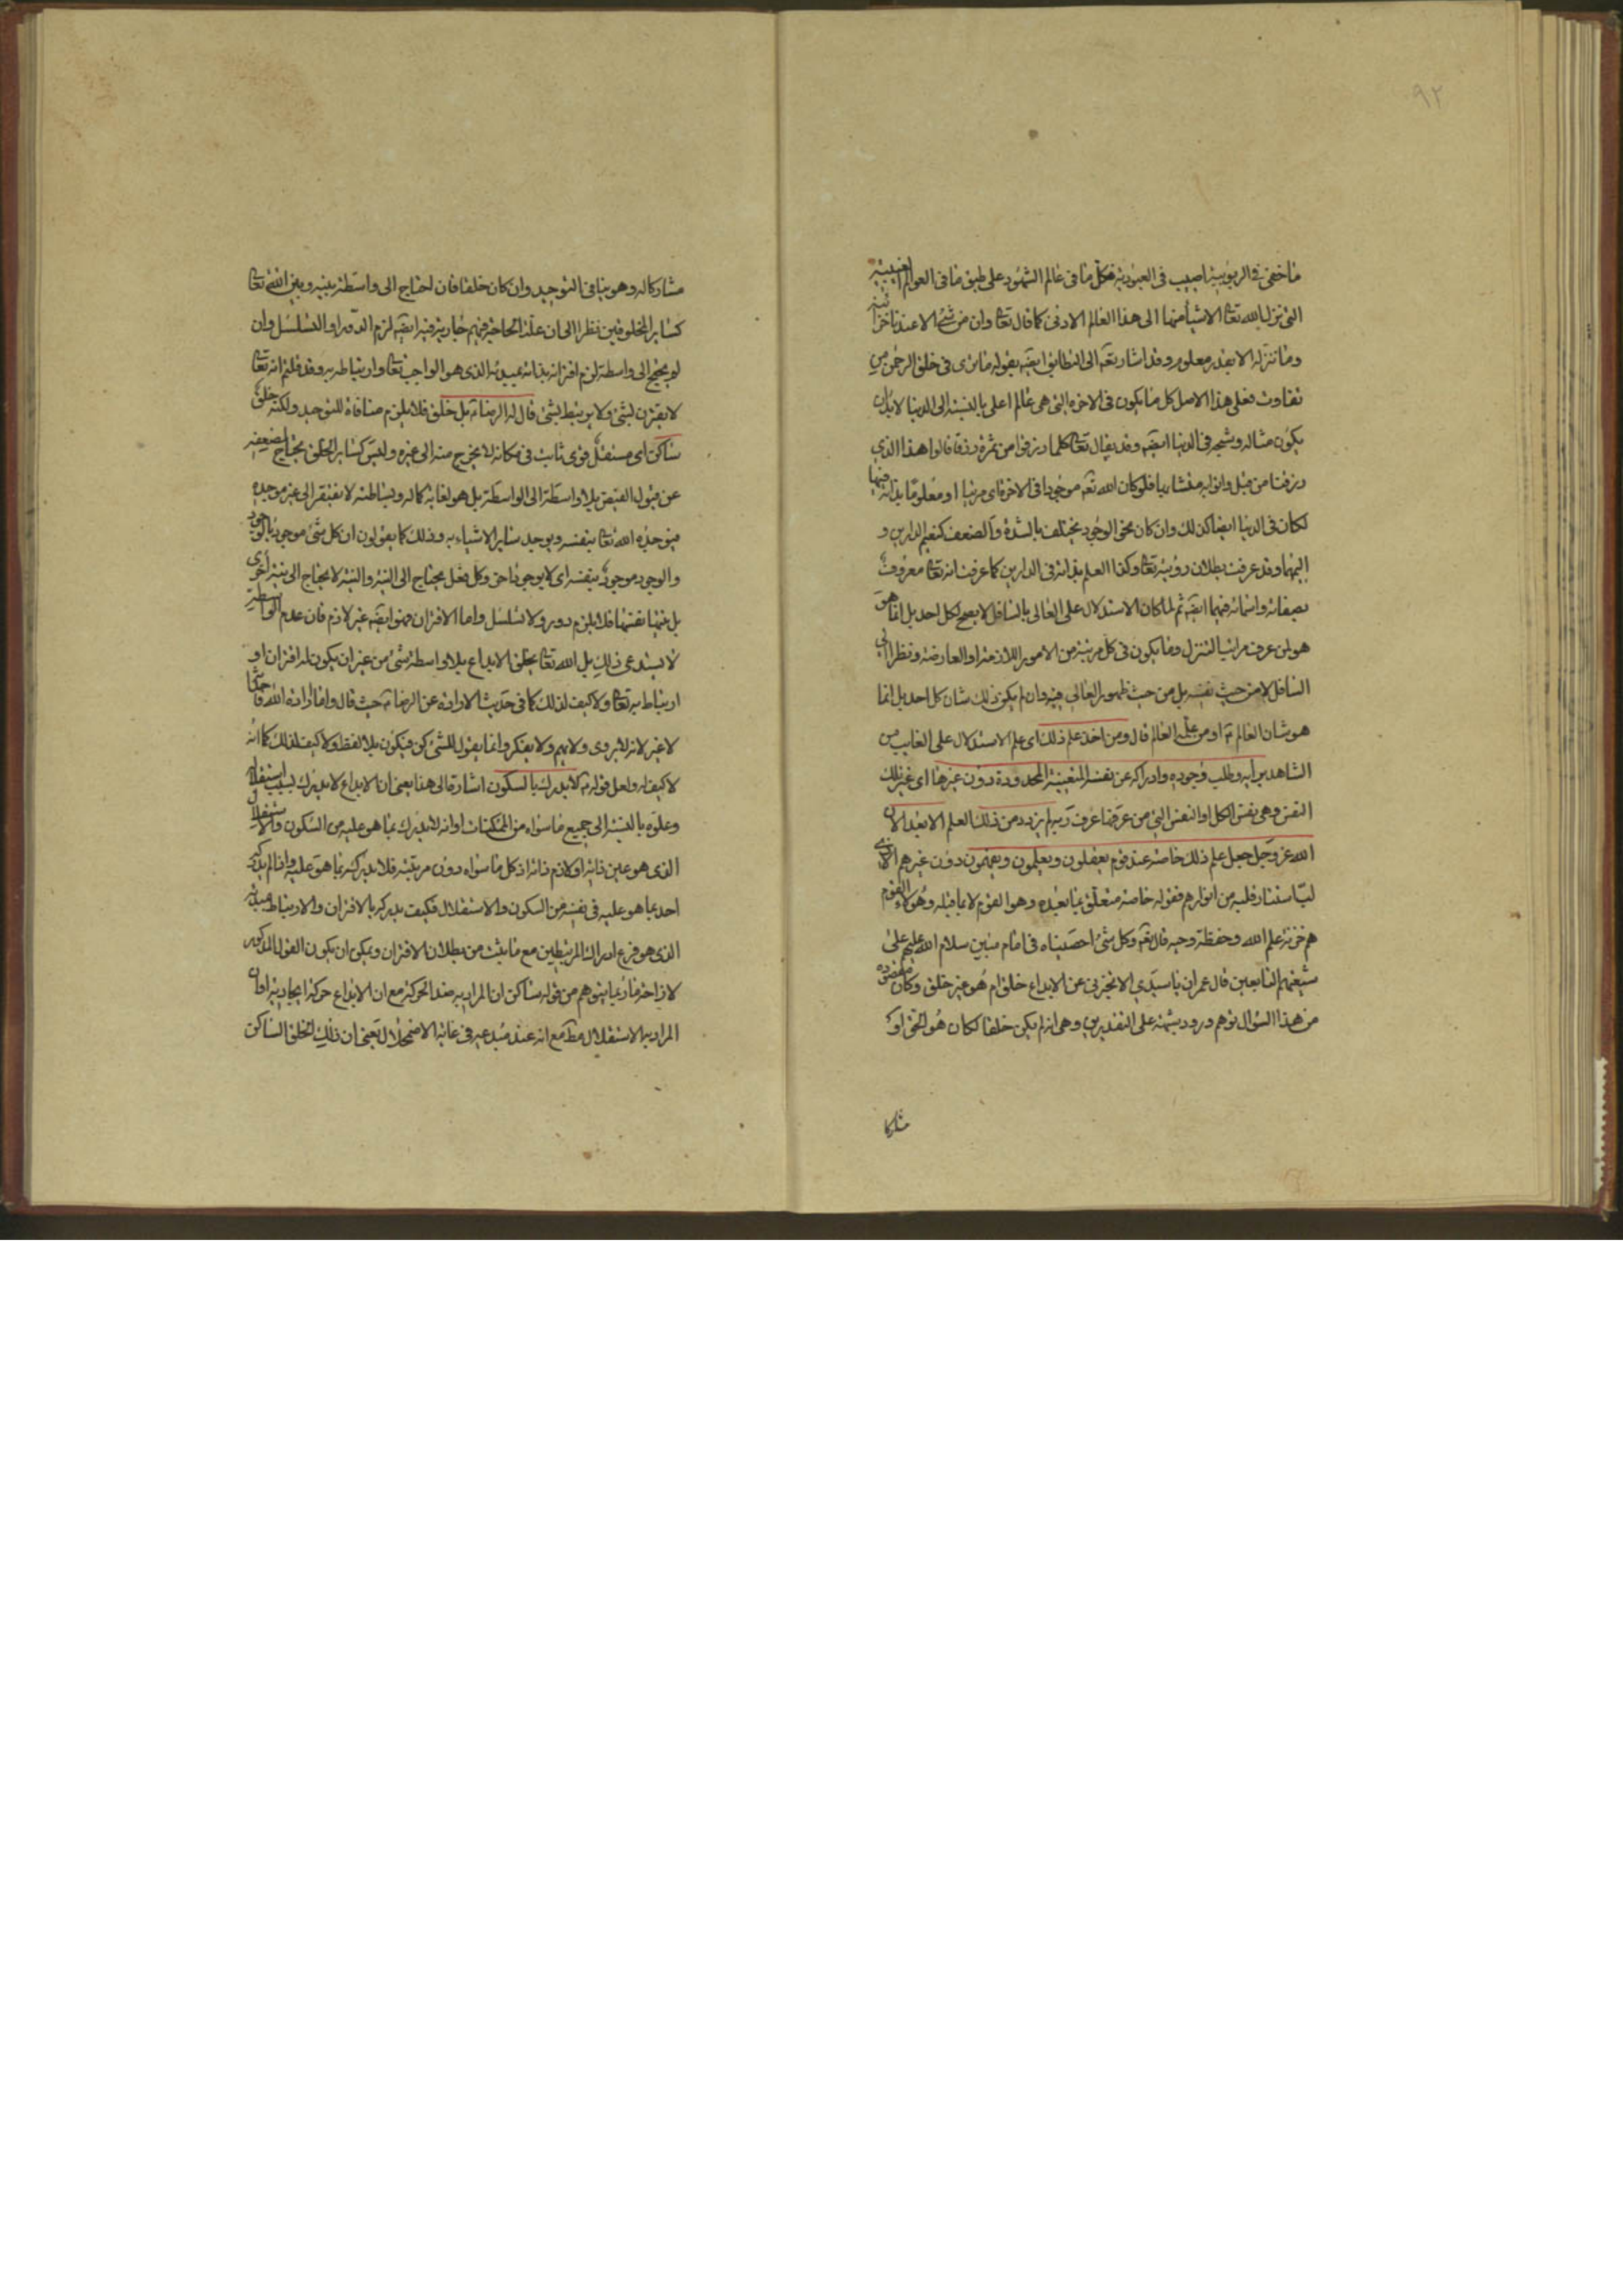 ٩٢
ما خفى فى الربوبية اصيب فى العبودية فكل ما فى عالم الشهود على طبق ما فى العوالم الغيبية
التى نزل الله تعا الاشيأ منها الى هذا العالم الادنى كما قال تعا وان من شئ الا عندنا خزائنه
وما ننزله الا بقدر معلوم وقد اشار تعه الى التطابق ايضه بقوله ما ترى فى خلق الرحمن من
تفاوت فعلى هذا الاصل كل ما يكون فى الاخرة التى هى عالم اعلى بالنسبة الى الدنيا لا بد ان
يكون مثاله وشبحه فى الدنيا ايضه وقد يقال تعا كلما رزقوا من ثمرة رزقا قالوا هذا الذى
رزقنا من قبل واتوا به متشابها فلو كان الله تعه موجودا فى الاخرة اى مرئيا او معلوما بذاته فيها
لكان فى الدنيا ايضا كذلك وان كان نحو الوجود يختلف بالشدة والضعف كنعيم الدارين و
اليهما وقد عرفت بطلان رؤيته تعا وكذا العلم بذاته فى الدارين كما عرفت انه تعا معروف
بصفاته واسمائه فيهما ايضه ثم لما كان الاستدلال على العالى بالسافل لا يصح لكل احد بل انما هو
هو لمن عرف مراتب التنزل وما يكون فى كل مرتبة من الامور اللازمة او العارضة ونظر الى
السافل لا من حيث نفسه بل من حيث ظهور العالى فيه وان لم يكن ذلك شان كل احد بل انما
هو شان العالم ع او من علمه العالم قال ومن اخذ علم ذلك اى علم الاستدلال على الغايب من
الشاهد برأيه وطلب وجوده وادراكه عن نفسه المتعينة المحدودة دون غيرها اى غير تلك
النفس وهى نفس الكل او النفس التى من عرفها عرف ربه لم يزدد من ذلك العلم الا بعدا لان
الله عز وجل جعل علم ذلك خاصة عند قوم يعقلون ويعلمون ويفهمون دون غيرهم الا الذى
استنار قلبه من انوارهم فقوله خاصة متعلق بما بعده وهو القوم لا بما قبله وهؤلاء القوم
هم خزنة علم الله وحفظة وحيه قال تعه وكل شئ احصيناه فى امام مبين سلام الله عليهم على
شيعتهم التابعين قال عمران يا سيدى الا تخبرنى عن الابداع خلق ام هو غير خلق وكان مقصوده
من هذا السؤال توهم ورود شبهة على التقديرين وهى انه لم يكن خلقا لكان هو الحق او
مشاركا
مشاركا له وهو ينافى التوحيد وان كان خلقا فان احتاج الى واسطة بينه وبين الله تعا
كساير المخلوقين نظرا الى ان علة الحاجة فيهم جارية فيه ايضه لزم الدور او التسلسل وان
لم يحتج الى واسطة لزم اقترانه بذاته بمبدئه الذى هو الواجب تعا وارتباطه به وقد قلتم انه تعا
لا يقترن بشئ ولا يرتبط بشئ قال له الرضا ع بل خلق فلا يلزم منافاة للتوحيد ولكنه خلق
ساكن اى مستقل قوى ثابت فى مكانه لا يخرج منه الى غيره وليس كساير الخلق يحتاج لضعفه
عن قبول الفيض بلا واسطة الى الواسطة بل هو لغاية كماله وبساطته لا يفتقر الى غير موجده
فيوجده الله تعا بنفسه ويوجد ساير الاشياء به وذلك كما يقولون ان كل شئ موجود بالوجود
والوجود موجود بنفسه اى لا بوجود اخر وكل فعل يحتاج الى النية والنية لا يحتاج الى نية اخرى
بل هى بنفسها فلا يلزم دور ولا تسلسل واما الاقتران فهو ايضه غير لازم فان عدم الواسطة
لا يستدعى ذلك بل الله تعا يخلق الابداع بلا واسطة شئ من غير ان يكون له اقتران او
ارتباط به تعا ولا كيف لذلك كما فى حديث الارادة عن الرضا ع حيث قال واما ارادة الله فاحداثه
لا غير لانه لا يروى ولا يهم ولا يفكر وانما يقول للشئ كن فيكون بلا لفظ ولا كيف لذلك كما انه
لا كيف له ولعل قوله ع لا يدرك بالسكون اشارة الى هذا يعنى ان الابداع لا يدرك بسبب استقلاله
وعلوه بالنسبة الى جميع ما سواه من الممكنات او انه لا يدرك بما هو عليه من السكون والاستقلال
الذى هو عين ذاته او لازم ذاته اذ كل ما سواه دون مرتبته فلا يدركه بما هو عليه واذا لم يدركه
احد بما هو عليه فى نفسه من السكون والاستقلال فكيف يدركه بالاقتران والارتباط بمبدئه
الذى هو فرع ادراك المرتبطين مع ما يثبت من بطلان الاقتران ويمكن ان يكون القول المذكور
لازاحة ما ربما يتوهم من قوله ساكن ان المراد به ضد الحركة مع ان الابداع حركة ايجادية او ان
المراد به الاستقلال مطه مع انه عند مبدعه فى غاية الاضمحلال يعنى ان ذلك الخلق الساكن